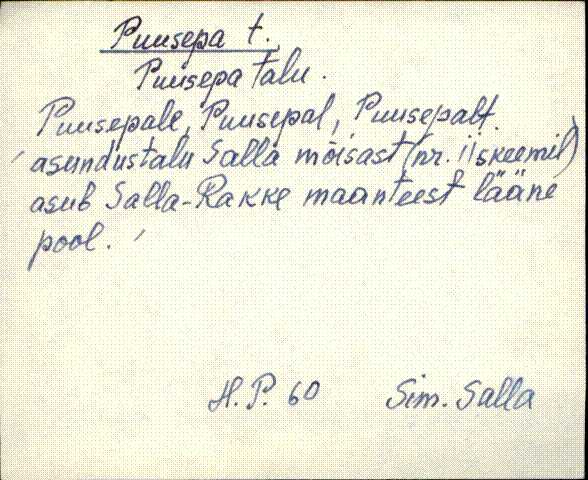 Puusepa t.
Puusepa talu.
Puusepale, Puusepal, Puusepalt.
asundustalu Salla mõisast (nr. 11 skeemil)
asub Salla-Rakke maanteest lääne
pool.
H. P. 60 Sim. Salla